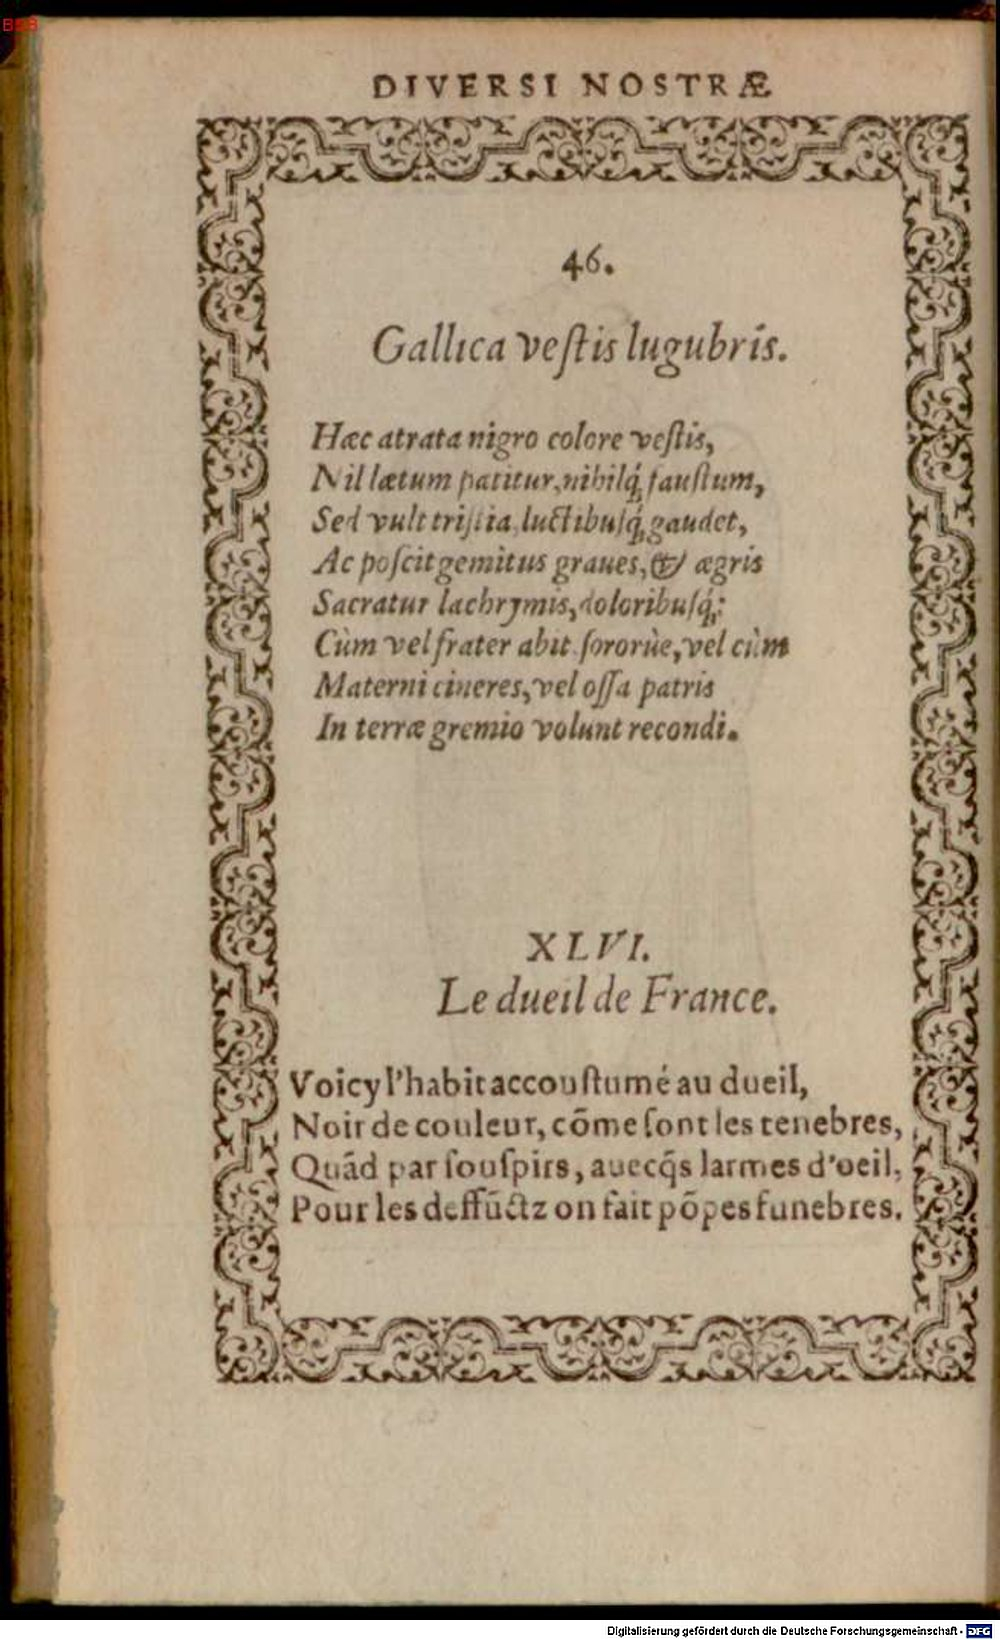 BSB
DIVERSI NOSTRÆ
46.
Gallica veſtis lugubris.
Hæc atrata nigro colore veſtis,
Nil lætum patitur, nihilq́; fauſtum,
Sed vult triſtia, luctibuſq́; gaudet,
Ac poſcit gemitus graues, & ægris
Sacratur lachrymis, doloribuſq́;:
Cùm vel frater abit, ſororúe, vel cùm
Materni cineres, vel oſſa patris
In terræ gremio volunt recondi.
XLVI.
Le dueil de France.
Voicy l'habit accouſtumé au dueil,
Noir de couleur, cõme ſont les tenebres,
Quãd par ſouſpirs, auecq̃s larmes d'oeil,
Pour les deffũctz on fait põpes funebres.
Digitalisierung gefördert durch die Deutsche Forschungsgemeinschaft - DFG